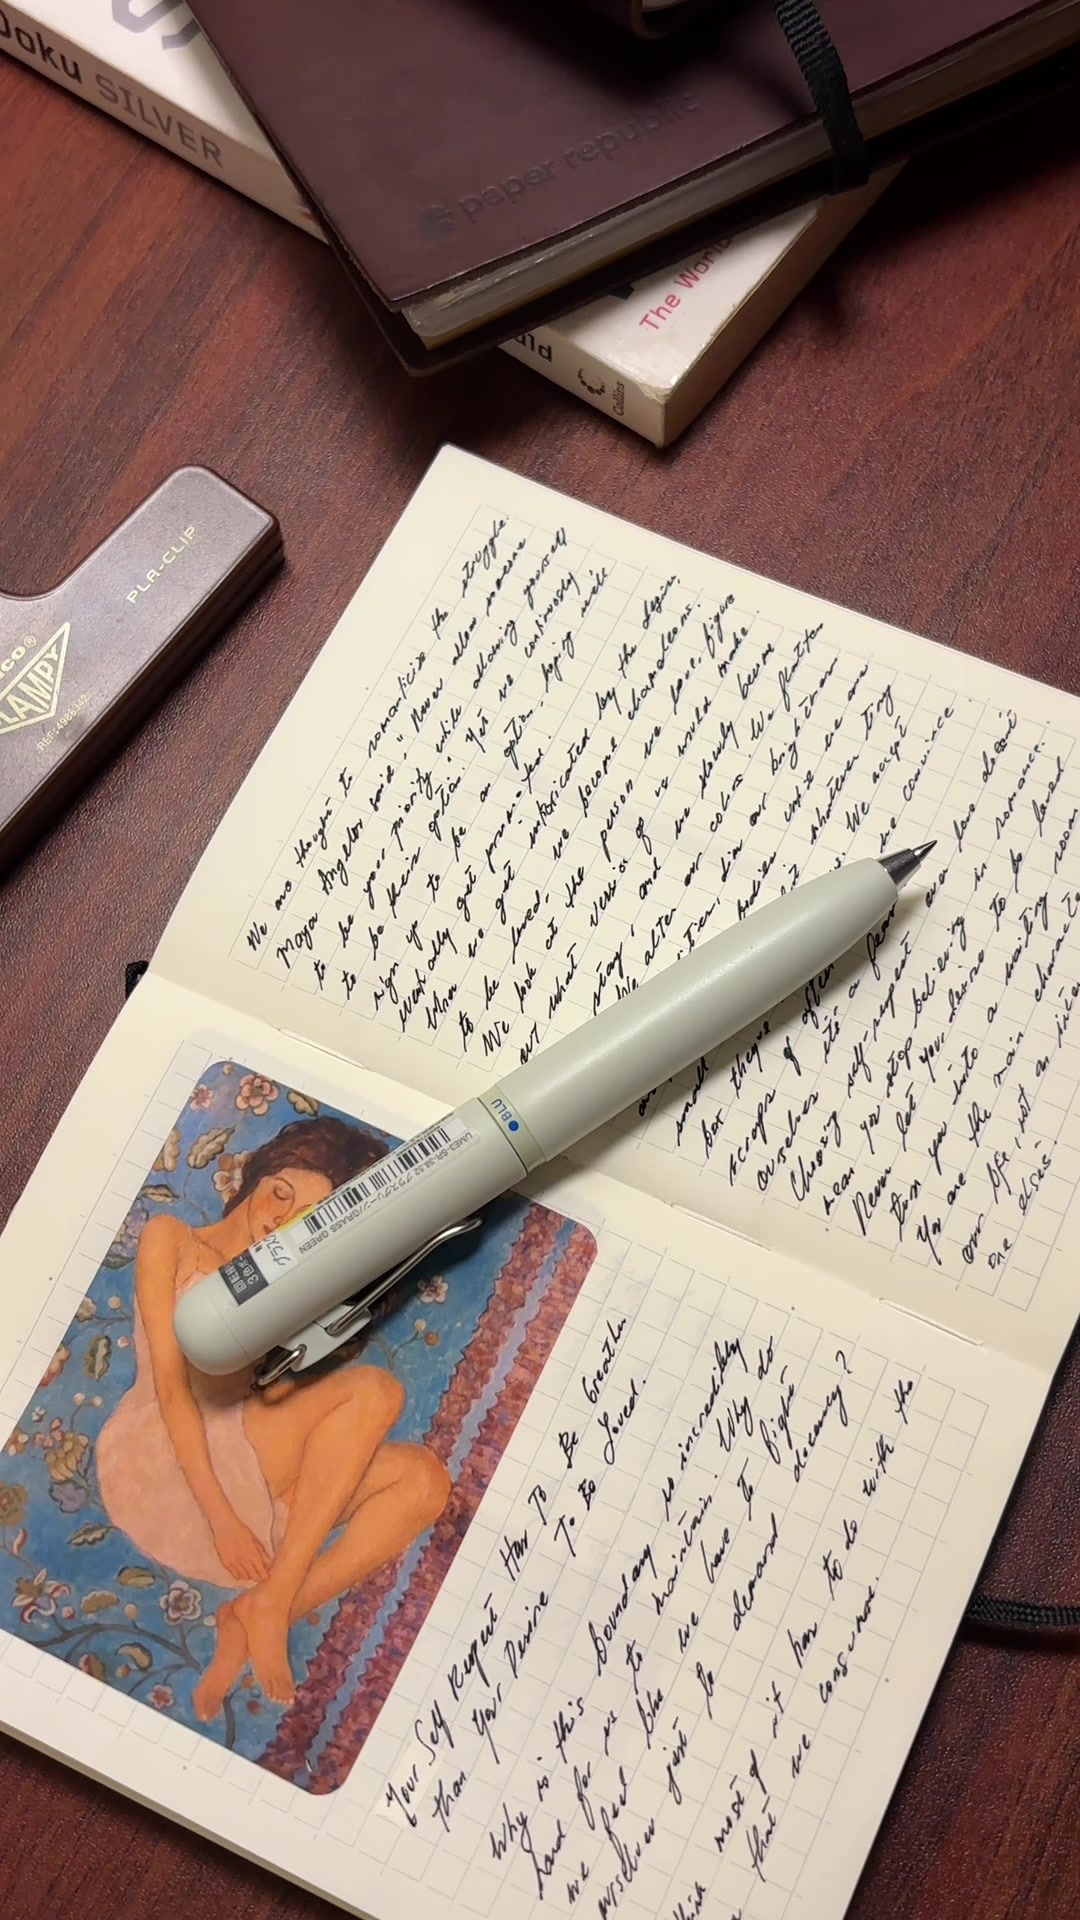 Doku SILVER
paper republic
The World
Collins
PLR-CLIP
KRAMPY
REF:4986342
We are thought to romanticize the struggle.
Maya Angelou said, "Never allow someone
to be your priority, while allowing yourself
to be their option." Yet we continuously
sign up to be an option, hoping we'll
eventually get promoted.
When we get intoxicated by the desire
to be loved, we become chameleons.
We look at the person we love, figure
out what version of us would make
stay, and we slowly become
We alter our colors. We flatten
dim our brightness
bodies
whatever tiny
We accept
small
convince
for
scraps of
ourselves it's a feast
Choosing self-respect over love doesn't
mean you stop believing in romance.
Never let your desire to be loved
turn you into a waiting room
You are the main character
our life, not an
one else's.
BLU
UME3-SR-38 52 グラスグリーン/GRASS GREEN
Your Self Respect Has To Be Greater
than Your Desire To Be Loved.
Why is this boundary so incredibly
hard for us to maintain? Why do
we feel like we have to fight
ourselves just to demand decency?
think most of it has to do with the
that we consume.